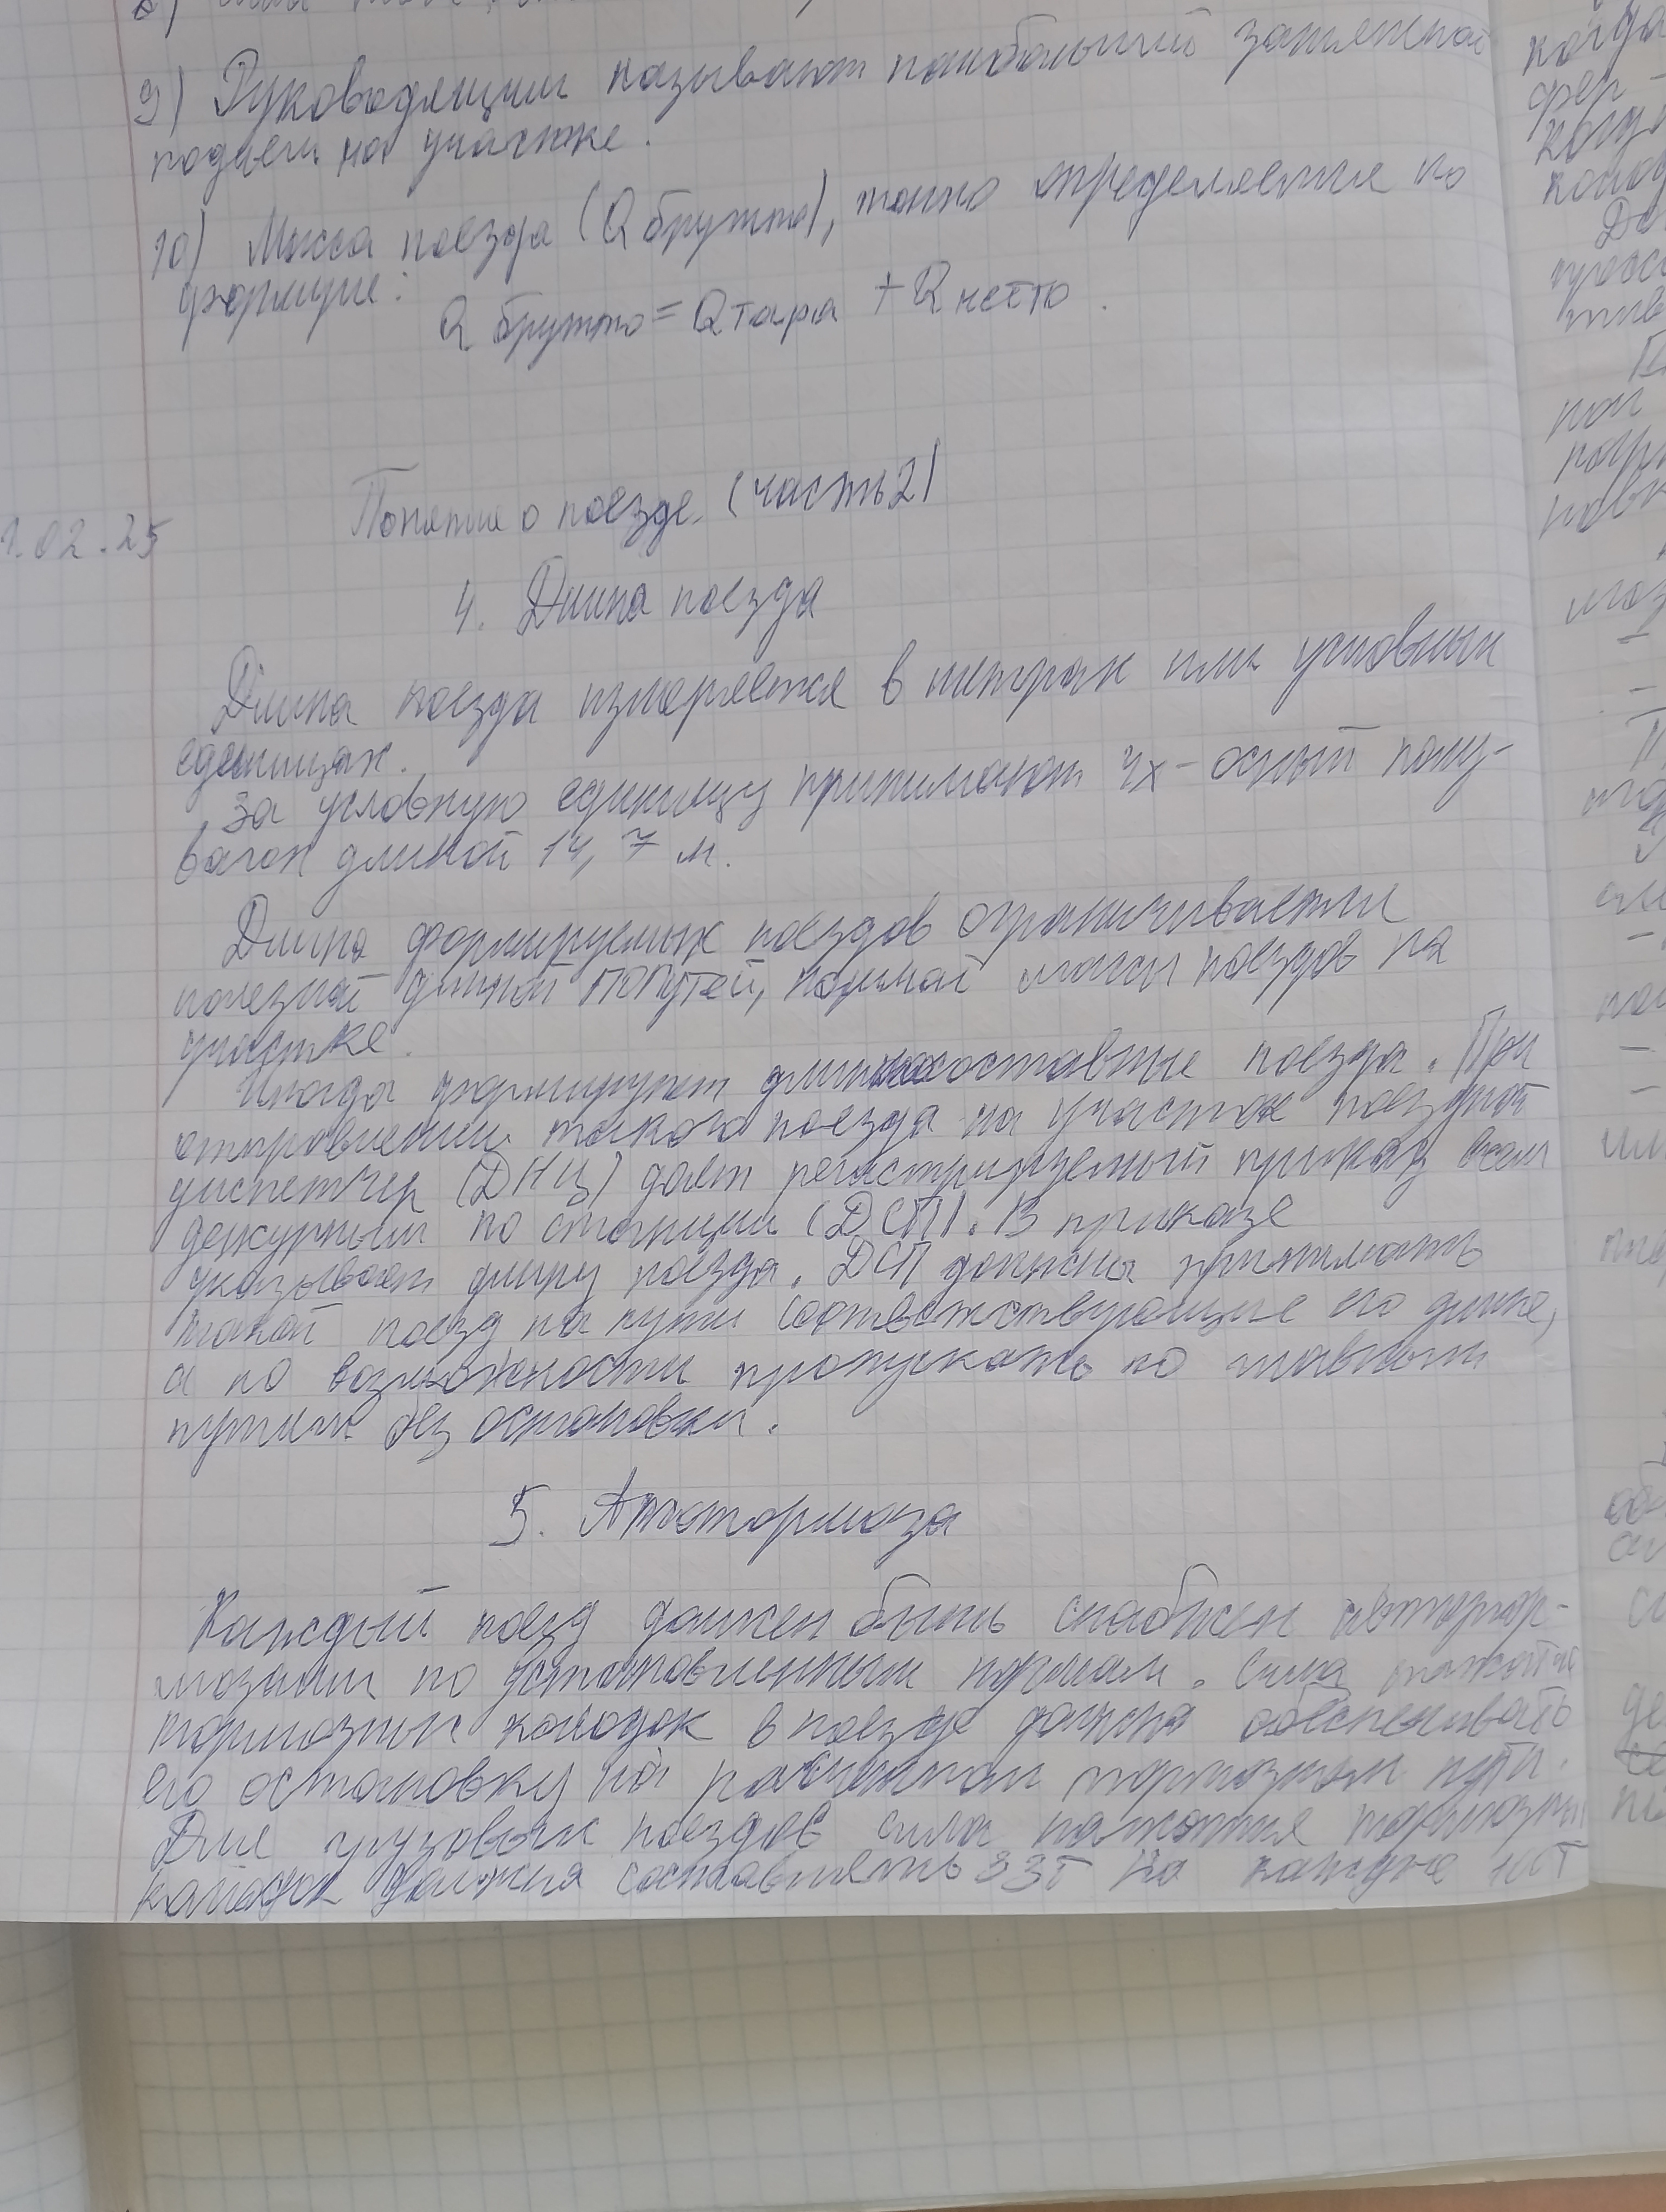 9) Руководящим называют наибольший затяжной
подъем на участке.
10) Масса поезда (Q брутто), точно определяется по
формуле:
Q брутто = Q тара + Q нетто.
1.02.25
Понятие о поезде. (часть 2)
4. Длина поезда
Длина поезда измеряется в метрах или условных
еденицах.
За условную единицу принимают 4х-осный полу-
вагон длиной 14,7 м.
Длина формируемых поездов ограничивается
полезной длиной ПОПутей, нормой массы поездов на
участке.
Иногда формируют длинносоставные поезда. При
отправлении такого поезда на участок поездной
диспетчер (ДНЦ) дает регистрируемый приказ всем
дежурным по станции (ДСП). В приказе
указывает длину поезда. ДСП должны принимать
такой поезд на пути соответствующие его длине,
а по возможности пропускать по главным
путям без остановки.
5. Автотормоза
Каждый поезд должен быть снабжен автотор-
мозами по установленным нормам. Сила нажатия
тормозных колодок в поезде должна обеспечивать
его остановку на расчетном тормозном пути.
Для грузовых поездов сила нажатия тормозных
колодок должна составлять 33т на каждые 100т